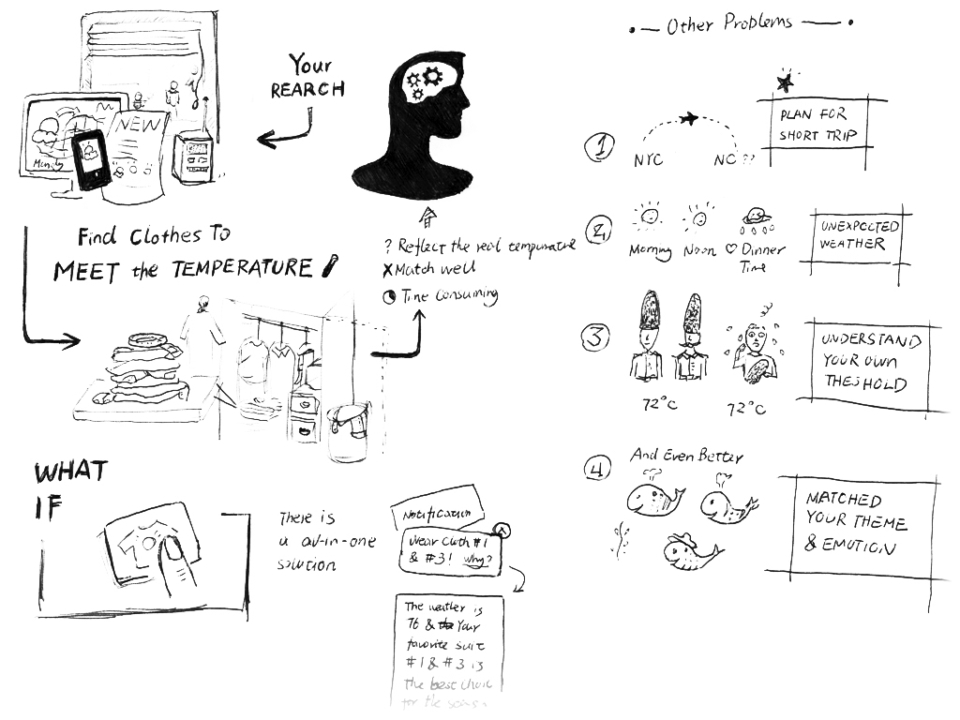 Your
REARCH
NEW
Find Clothes To
MEET the TEMPERATURE
? Reflect the real temperature
X Match well
Time Consuming
WHAT
IF
There is
a all-in-one
solution
Notification
Wear Cloth #1
& #3! Why?
The weather is
76 & Your
favorite suit
#1 & #3 is
the best choice
for the
Other Problems
1
NYC
NC ??
PLAN FOR
SHORT TRIP
2
Morning
Noon
♡ Dinner
Time
UNEXPECTED
WEATHER
3
72°C
72°C
UNDERSTAND
YOUR OWN
THESHOLD
4
And Even Better
MATCHED
YOUR THEME
& EMOTION